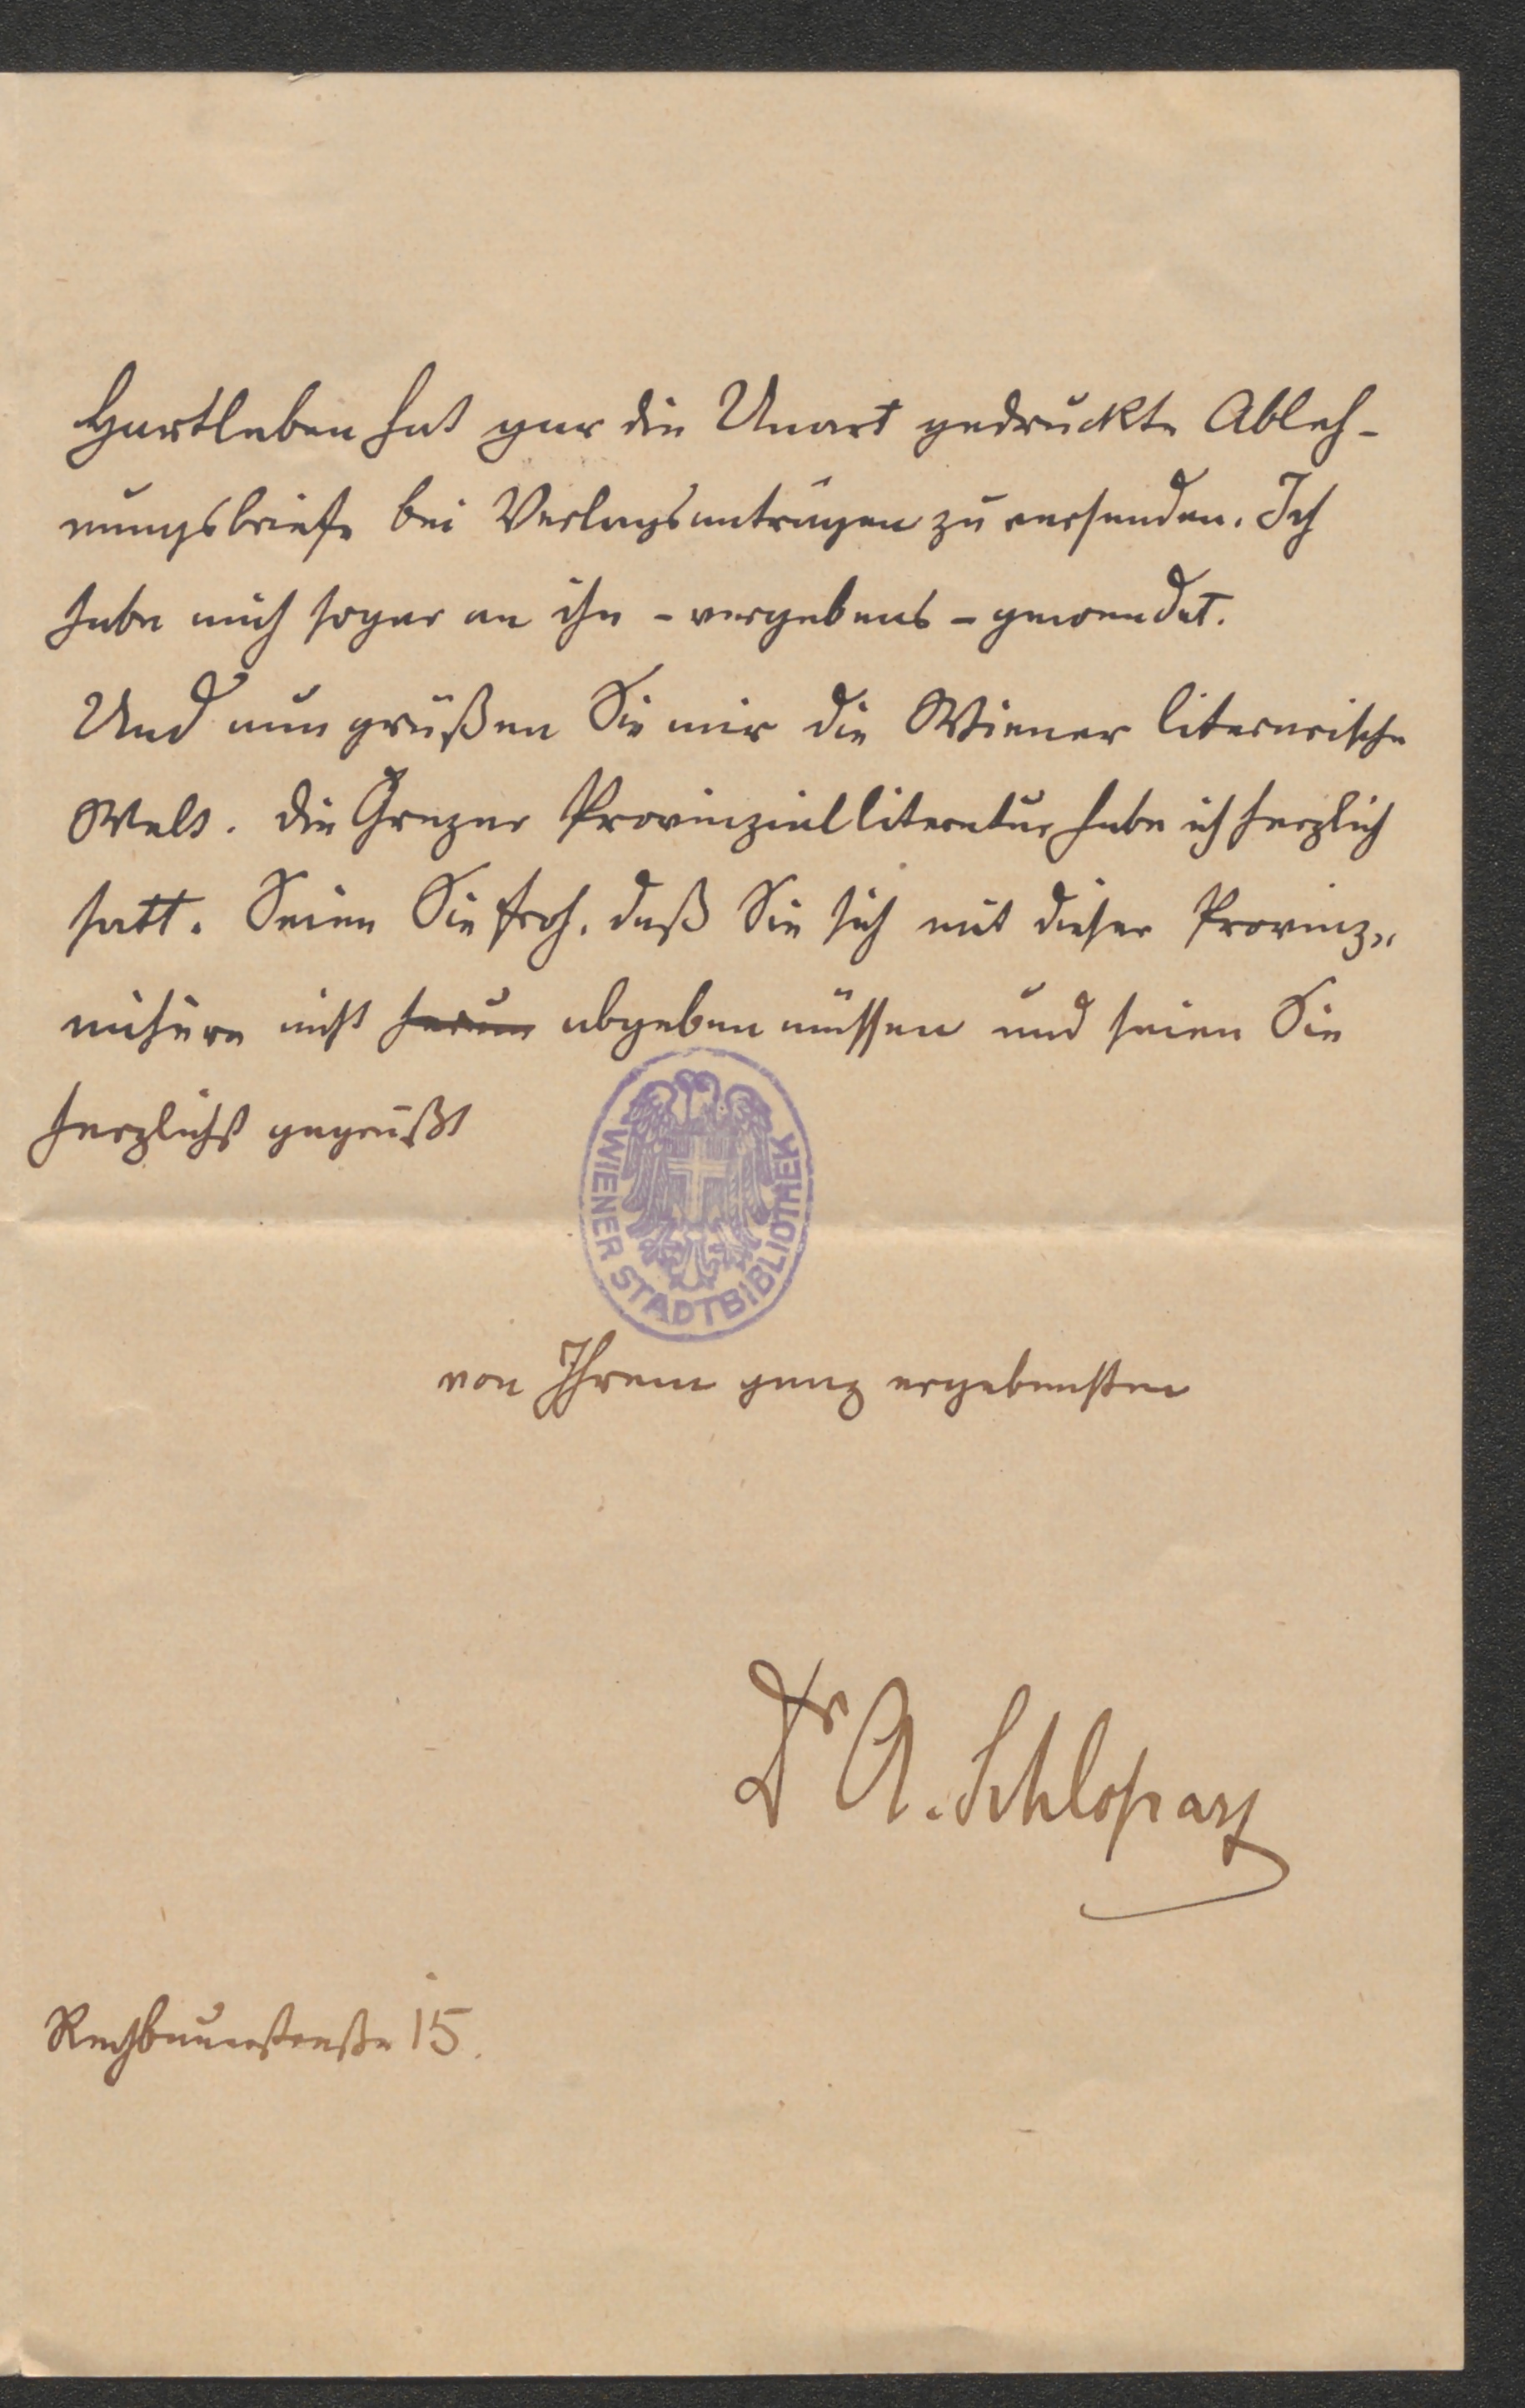 Hartleben hat gar die Unart gedruckte Ableh-
nungsbriefe bei Verlagsanträgen zu versenden. Ich
habe mich sogar an ihn - vergebens - gewendet.
Und nun grüßen Sie mir die Wiener literarische
Welt. Die Grazer Provinzialliteratur habe ich herzlich
satt. Seien Sie froh, daß Sie sich mit dieser Provinz-
misère nicht herum abgeben müssen und seien Sie
herzlichst gegrüßt
WIENER STADTBIBLIOTHEK
von Ihrem ganz ergebensten
Dr A. Schlossar
Rechbauerstraße 15.